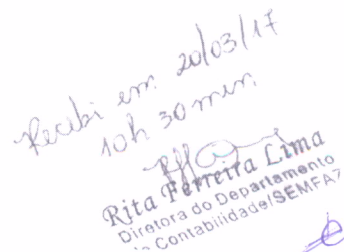 Recebi em 20/03/17
10h 30 min
Rita Ferreira Lima
Diretora do Departamento
Contabilidade/SEMFAZ